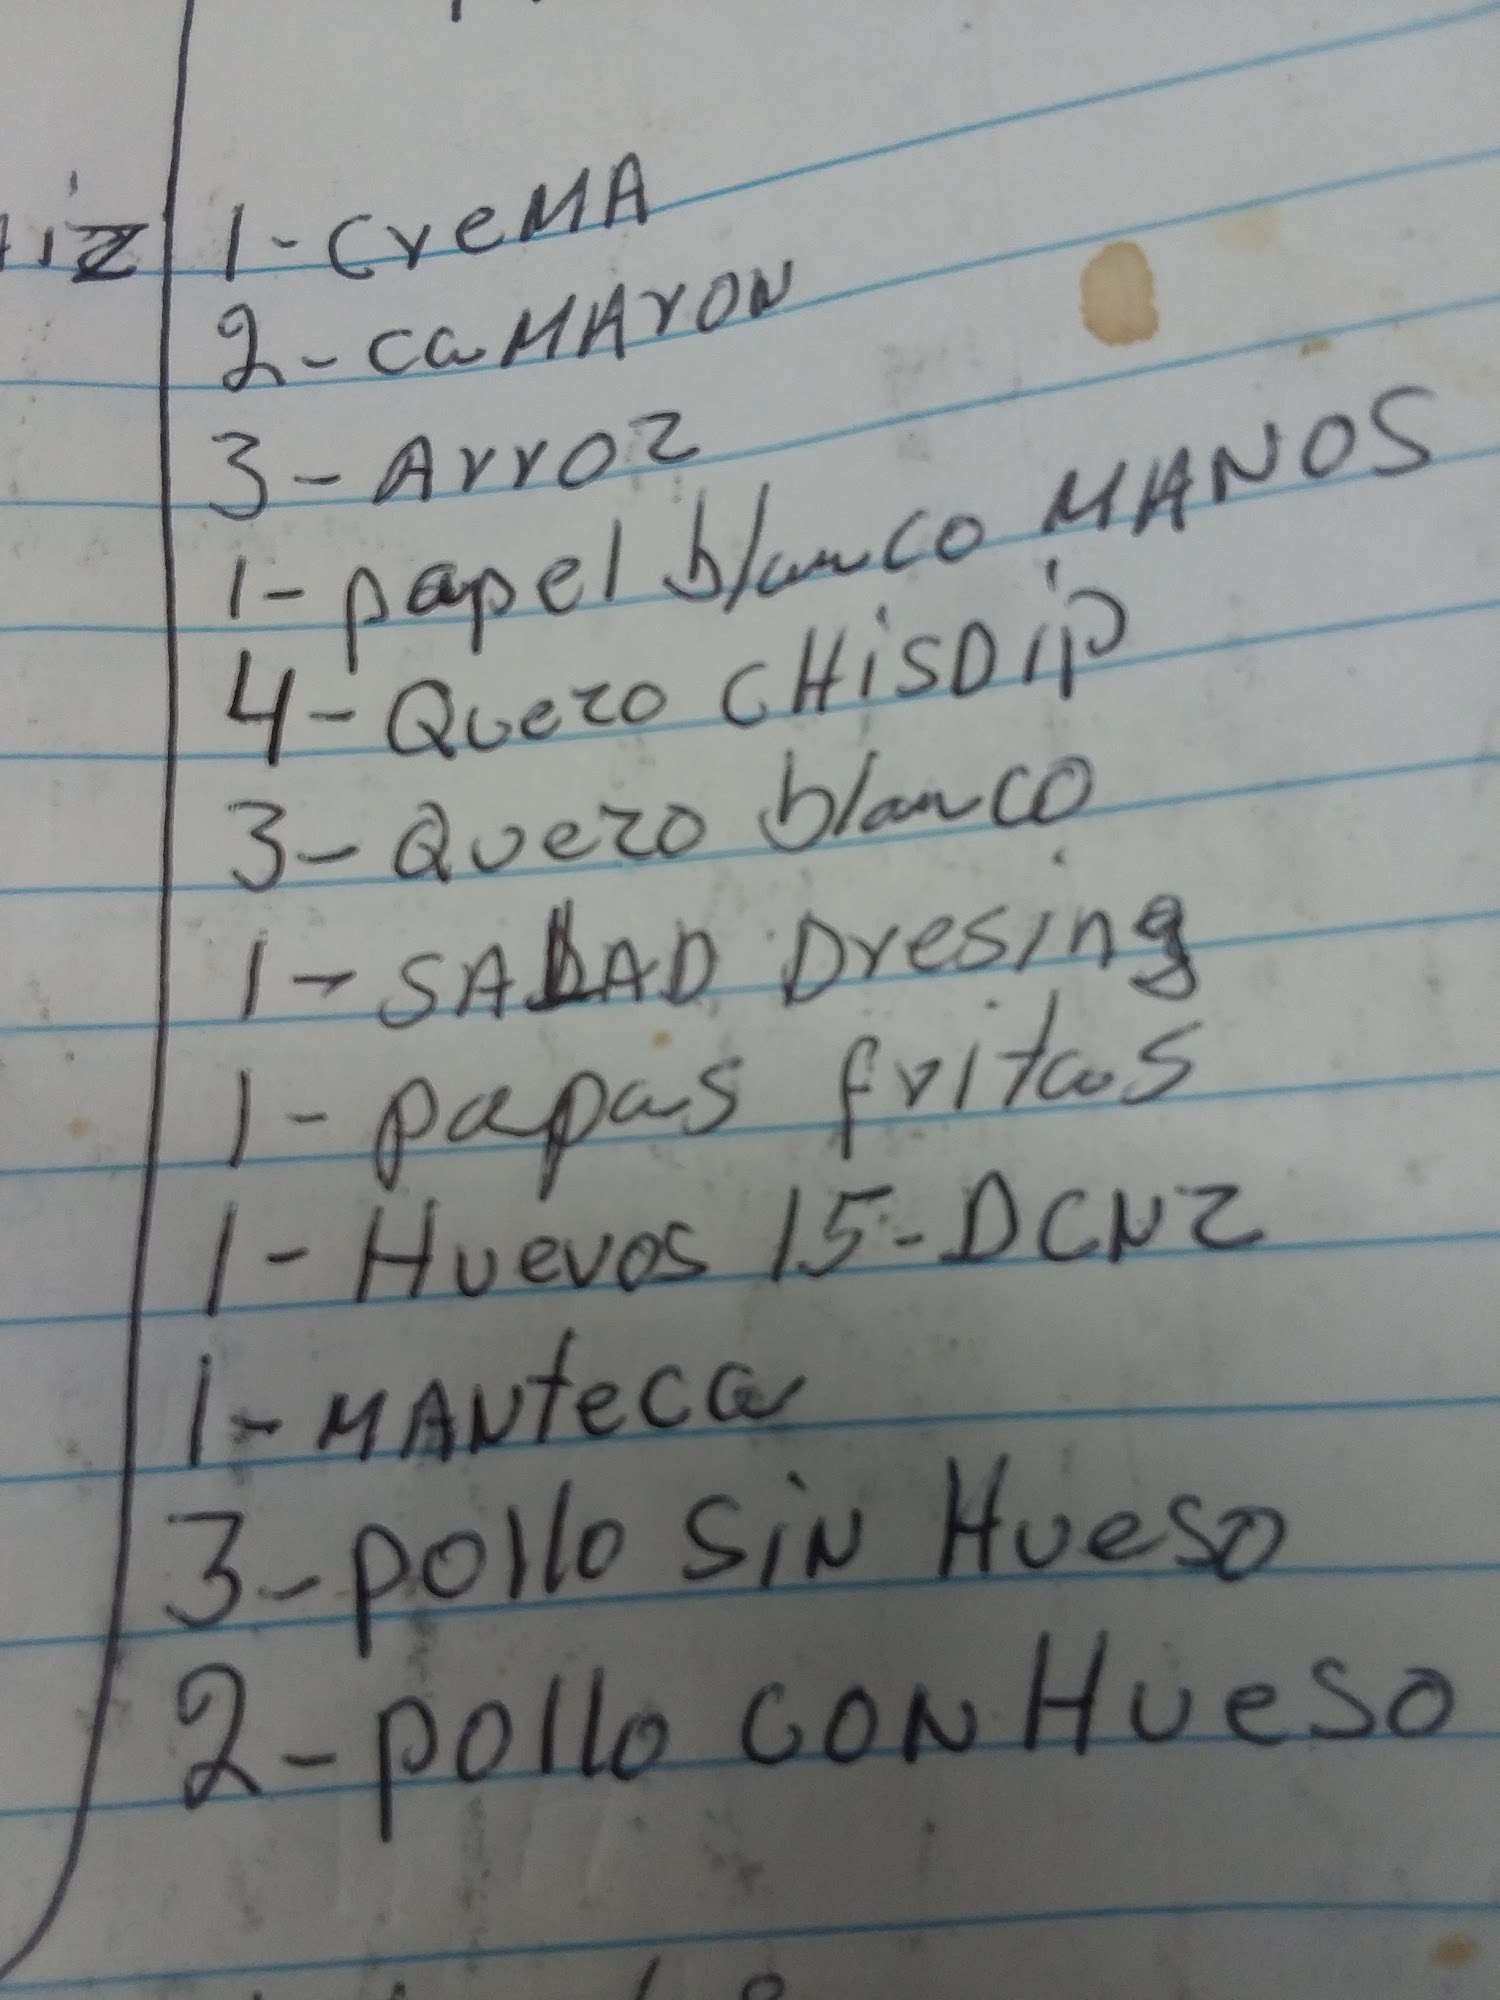 1-CreMA
2-caMArON
3-Arroz
1-papel blanco MANOS
4-Quezo CHisDip
3-Quezo blanco
1-SALAD Dresing
1-papas fritas
1-Huevos 15-DCNZ
1-MANteca
3-pollo SiN Hueso
2-pollo CON Hueso